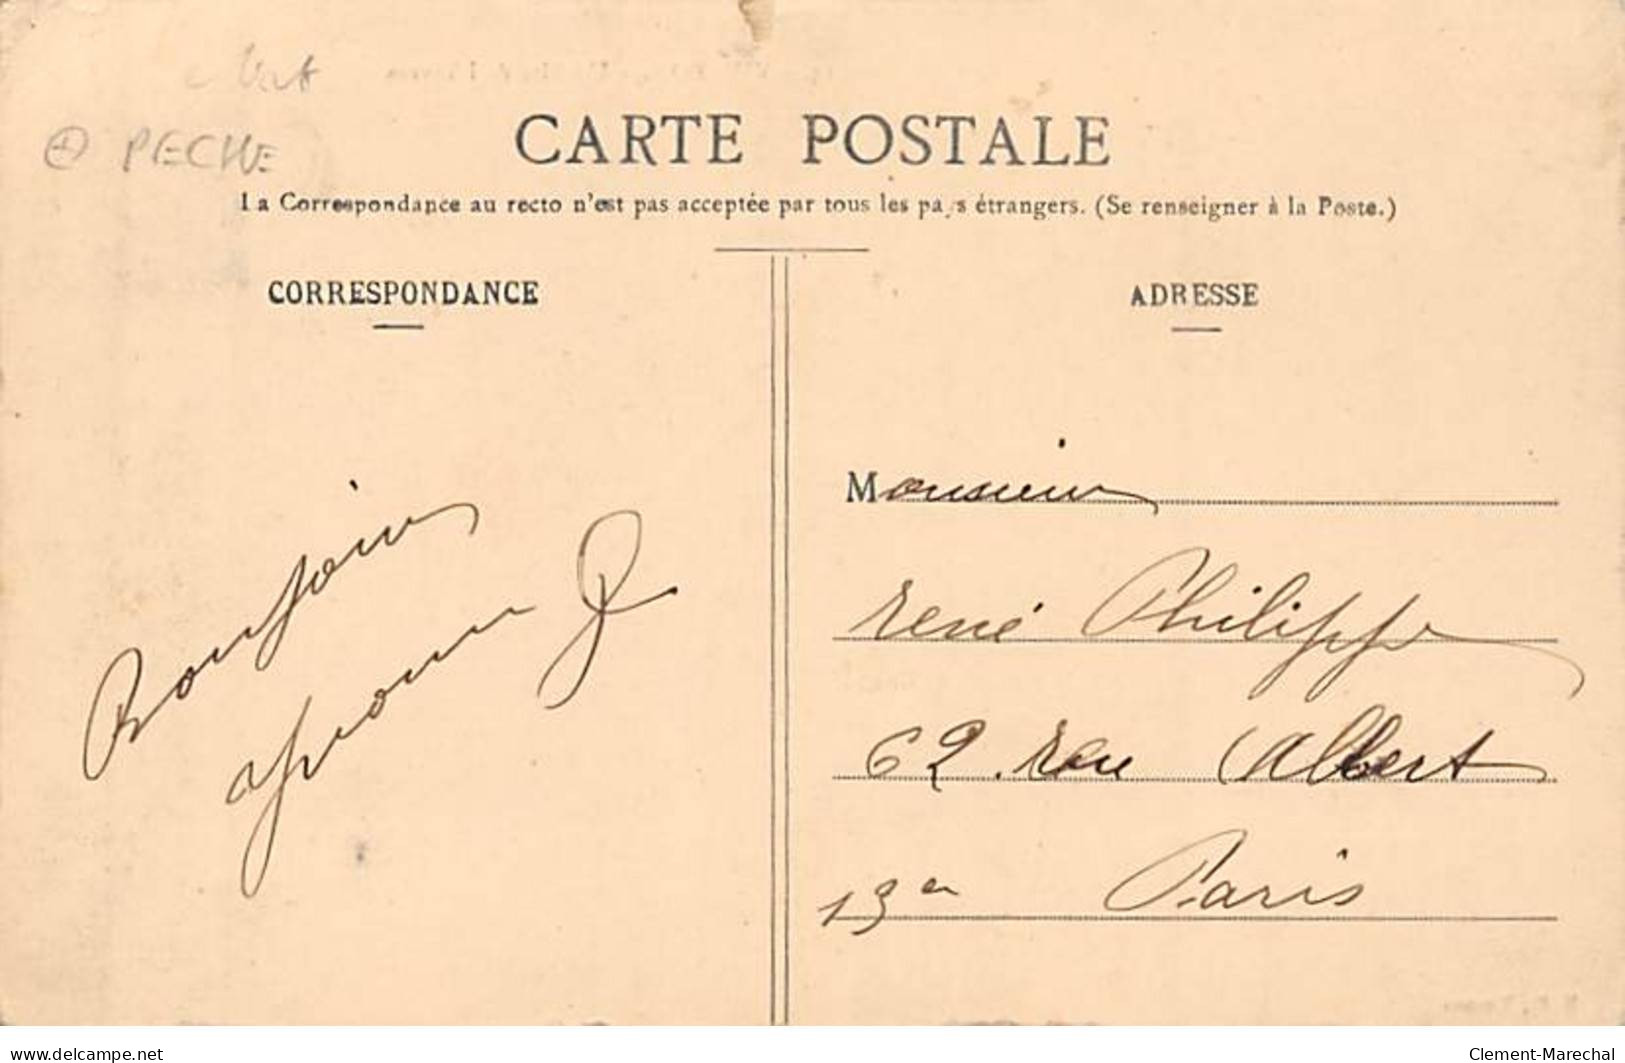 PECHE
CARTE POSTALE
La Correspondance au recto n'est pas acceptée par tous les pays étrangers. (Se renseigner à la Poste.)
CORRESPONDANCE
Bonjour
ADRESSE
Monsieur
René Philippe
62. rue Albert
13e Paris
www.delcampe.net
Clement-Marechal